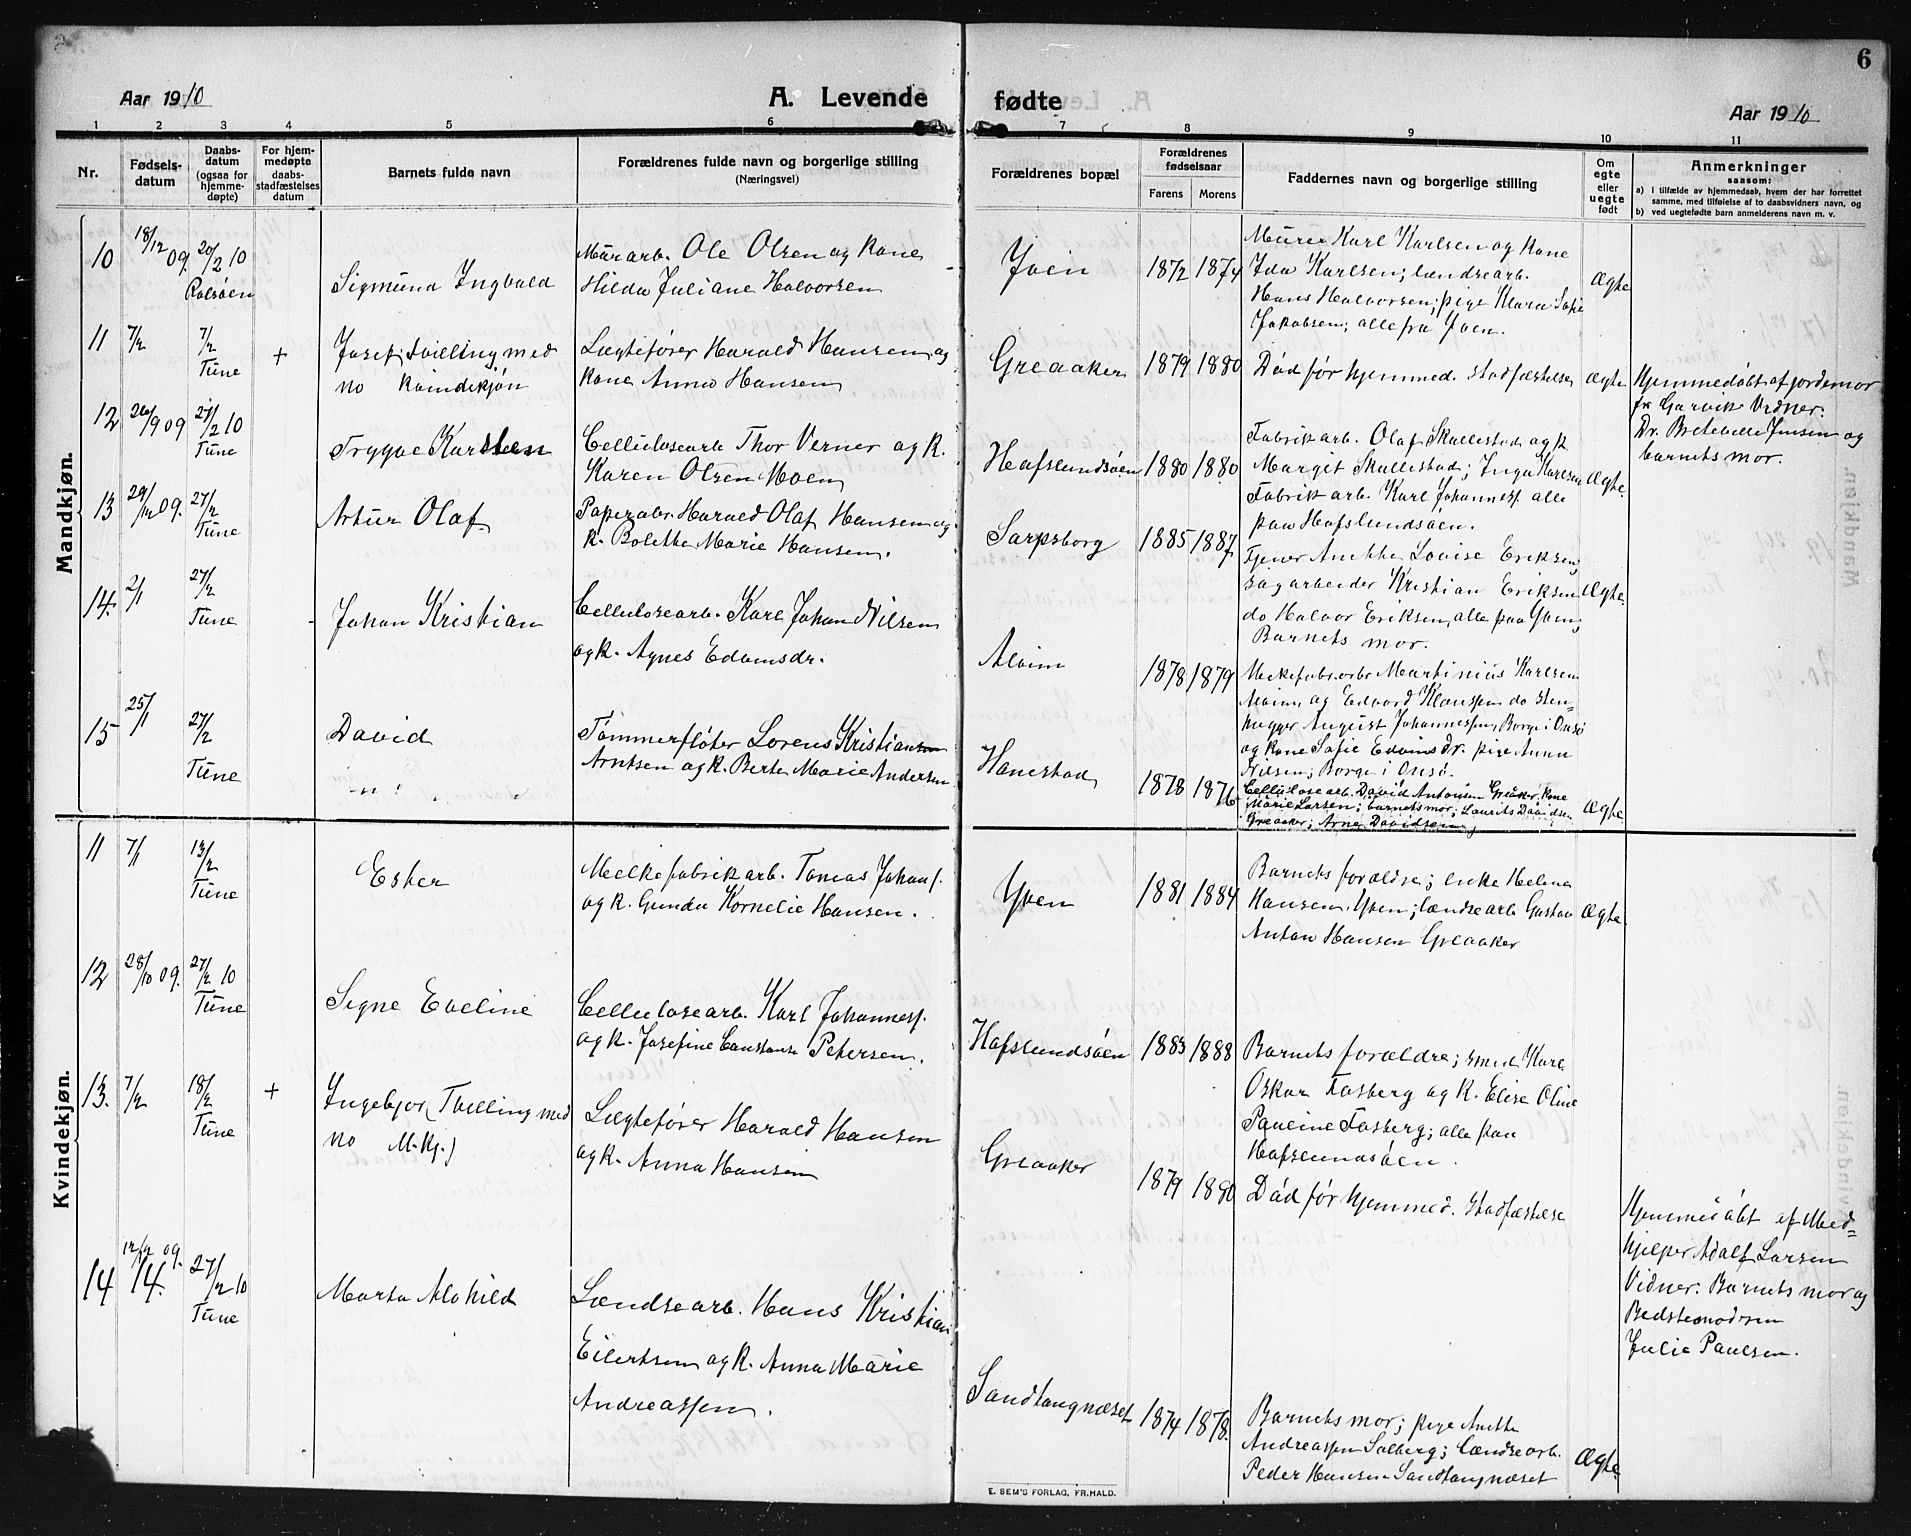 6
Aar 1910
A. Levende fødte
Aar 1910
1 2 3 4 5 6 7 8 9 10 11
Nr.
Fødsels-
datum
Daabs-
datum
(ogsaa for
hjemme-
døpte)
For hjem-
medøpte
daabs-
stadfæstelses
datum
Barnets fulde navn
Forældrenes fulde navn og borgerlige stilling
(Næringsvei)
Forældrenes bopæl
Forældrenes
fødselsaar
Farens Morens
Faddernes navn og borgerlige stilling
Om
egte
eller
uegte
født
Anmerkninger
saasom:
a) i tilfælde av hjemmedaab, hvem der har forrettet
samme, med tilføielse af to daabsvidners navn, og
b) ved uegtefødte barn anmelderens navn m. v.
Mandkjøn.
10
18/12 09.
20/2 10
Rolsøen
Sigmund Ingvald
Murarb. Ole Olsen og Kone
Hilda Juliane Halvorsen
Yven
1872 1874
Murer Karl Karlsen og Kone
Ida Karlsen; lændsearb.
Hans Halvorsen; pige Klara Sofie
Jakobsen; alle fra Yven.
Ægte
11
7/2
7/2
Tune
+
Josef, Tvilling med
no Kvindekjøn
Lægtefører Harald Hansen og
Kone Anna Hansen
Greaaker
1879 1880
Död før hjemmed. stadfæstelse
Ægte
Hjemmedöbt af jordemor
fr Garvik Vidner:
Dr. Bretteville Jensen og
barnets mor.
12
26/9 09
27/2 10
Tune
Trygve Karsten
Cellulosearb. Thor Verner og K.
Karen Olsen Moen
Hafslundsöen
1880 1880
Fabrikarb. Olaf Skallestad og K.
Margit Skallestad; Inga Karlsen
Fabrikarb. Karl Johannesf alle
paa Hafslundsöen.
Ægte.
13
29/12 09.
27/2
Tune
Artur Olaf
Papirarbr. Harald Olaf Hansen og
K. Bolette Marie Hansen.
Sarpsborg
1885 1887
Tjener Anethe Lovise Eriksen,
sagarbeider Kristian Eriksen
do Halvor Eriksen, alle paa Yven,
Barnets mor.
Ægte.
14.
2/1
27/2
Tune
Johan Kristian
Cellulosearb. Karl Johan Nilsen
og K. Agnes Edvinsdr.
Alvim
1878 1879
Melkefabr.arb. Martinius Karlsen
Alvim og Edvard Klausen do sten-
hugger August Johannessen, Borge i Onsö
og Kone Sofie Edvinsdr. pige Anna
Nilsen, Borge i Onsö.
15
25/1
27/2
Tune
David
Tömmerflöter Lorens Kristiansen
Arntsen og K. Berte Marie Andersen
Hanestad
1878 1876
Cellulosearb. David Antonsen Greaker. Kone
Marie Larsen; barnets mor; Laurits Davidsen
Greaaker; Arne Davidsen
Ægte
Kvindekjøn.
11
7/1
13/2
Tune
Ester
Melkefabrikarb. Tomas Johans.
og K. Gunda Kornelie Hansen.
Yven
1881 1884
Barnets forældre; enke Helena
Hansen, Yven; lændsearb Gustav
Anton Hansen Greaaker
Ægte.
12
28/10 09.
27/2 10
Tune
Signe Eveline
Cellulosearb. Karl Johannesf.
og K. Josefine Constanse Petersen.
Hafslundsöen
1883 1888
Barnets forældre; smed Karl
Oskar Fosberg og K. Elise Oline
Pauline Fosberg; alle paa
Hafslundsöen.
13.
7/2
18/2
Tune
+
Ingebjor (Tvilling med
no M.Kj.)
Lægtefører Harald Hansen
og K. Anna Hansen
Greaaker
1879 1880
Död før hjemmed. stadfæstelse
Hjemmedöbt af Med-
hjelper Adolf Larsen
Vidner. Barnets mor og
Bedstemoderen
Julie Paulsen.
14
12/12 09.
14.
27/2 10
Tune
Marta Alvhild
Lændsearb. Hans Kristian
Eilertsen og K. Anna Marie
Andreassen.
Sandtangnæset
1874 1878.
Barnets mor; pige Anethe
Andreassen Solberg; lændsearb.
Peder Hansen Sandtangnæset
Ægte.
E. SEM'S FORLAG, FR.HALD.